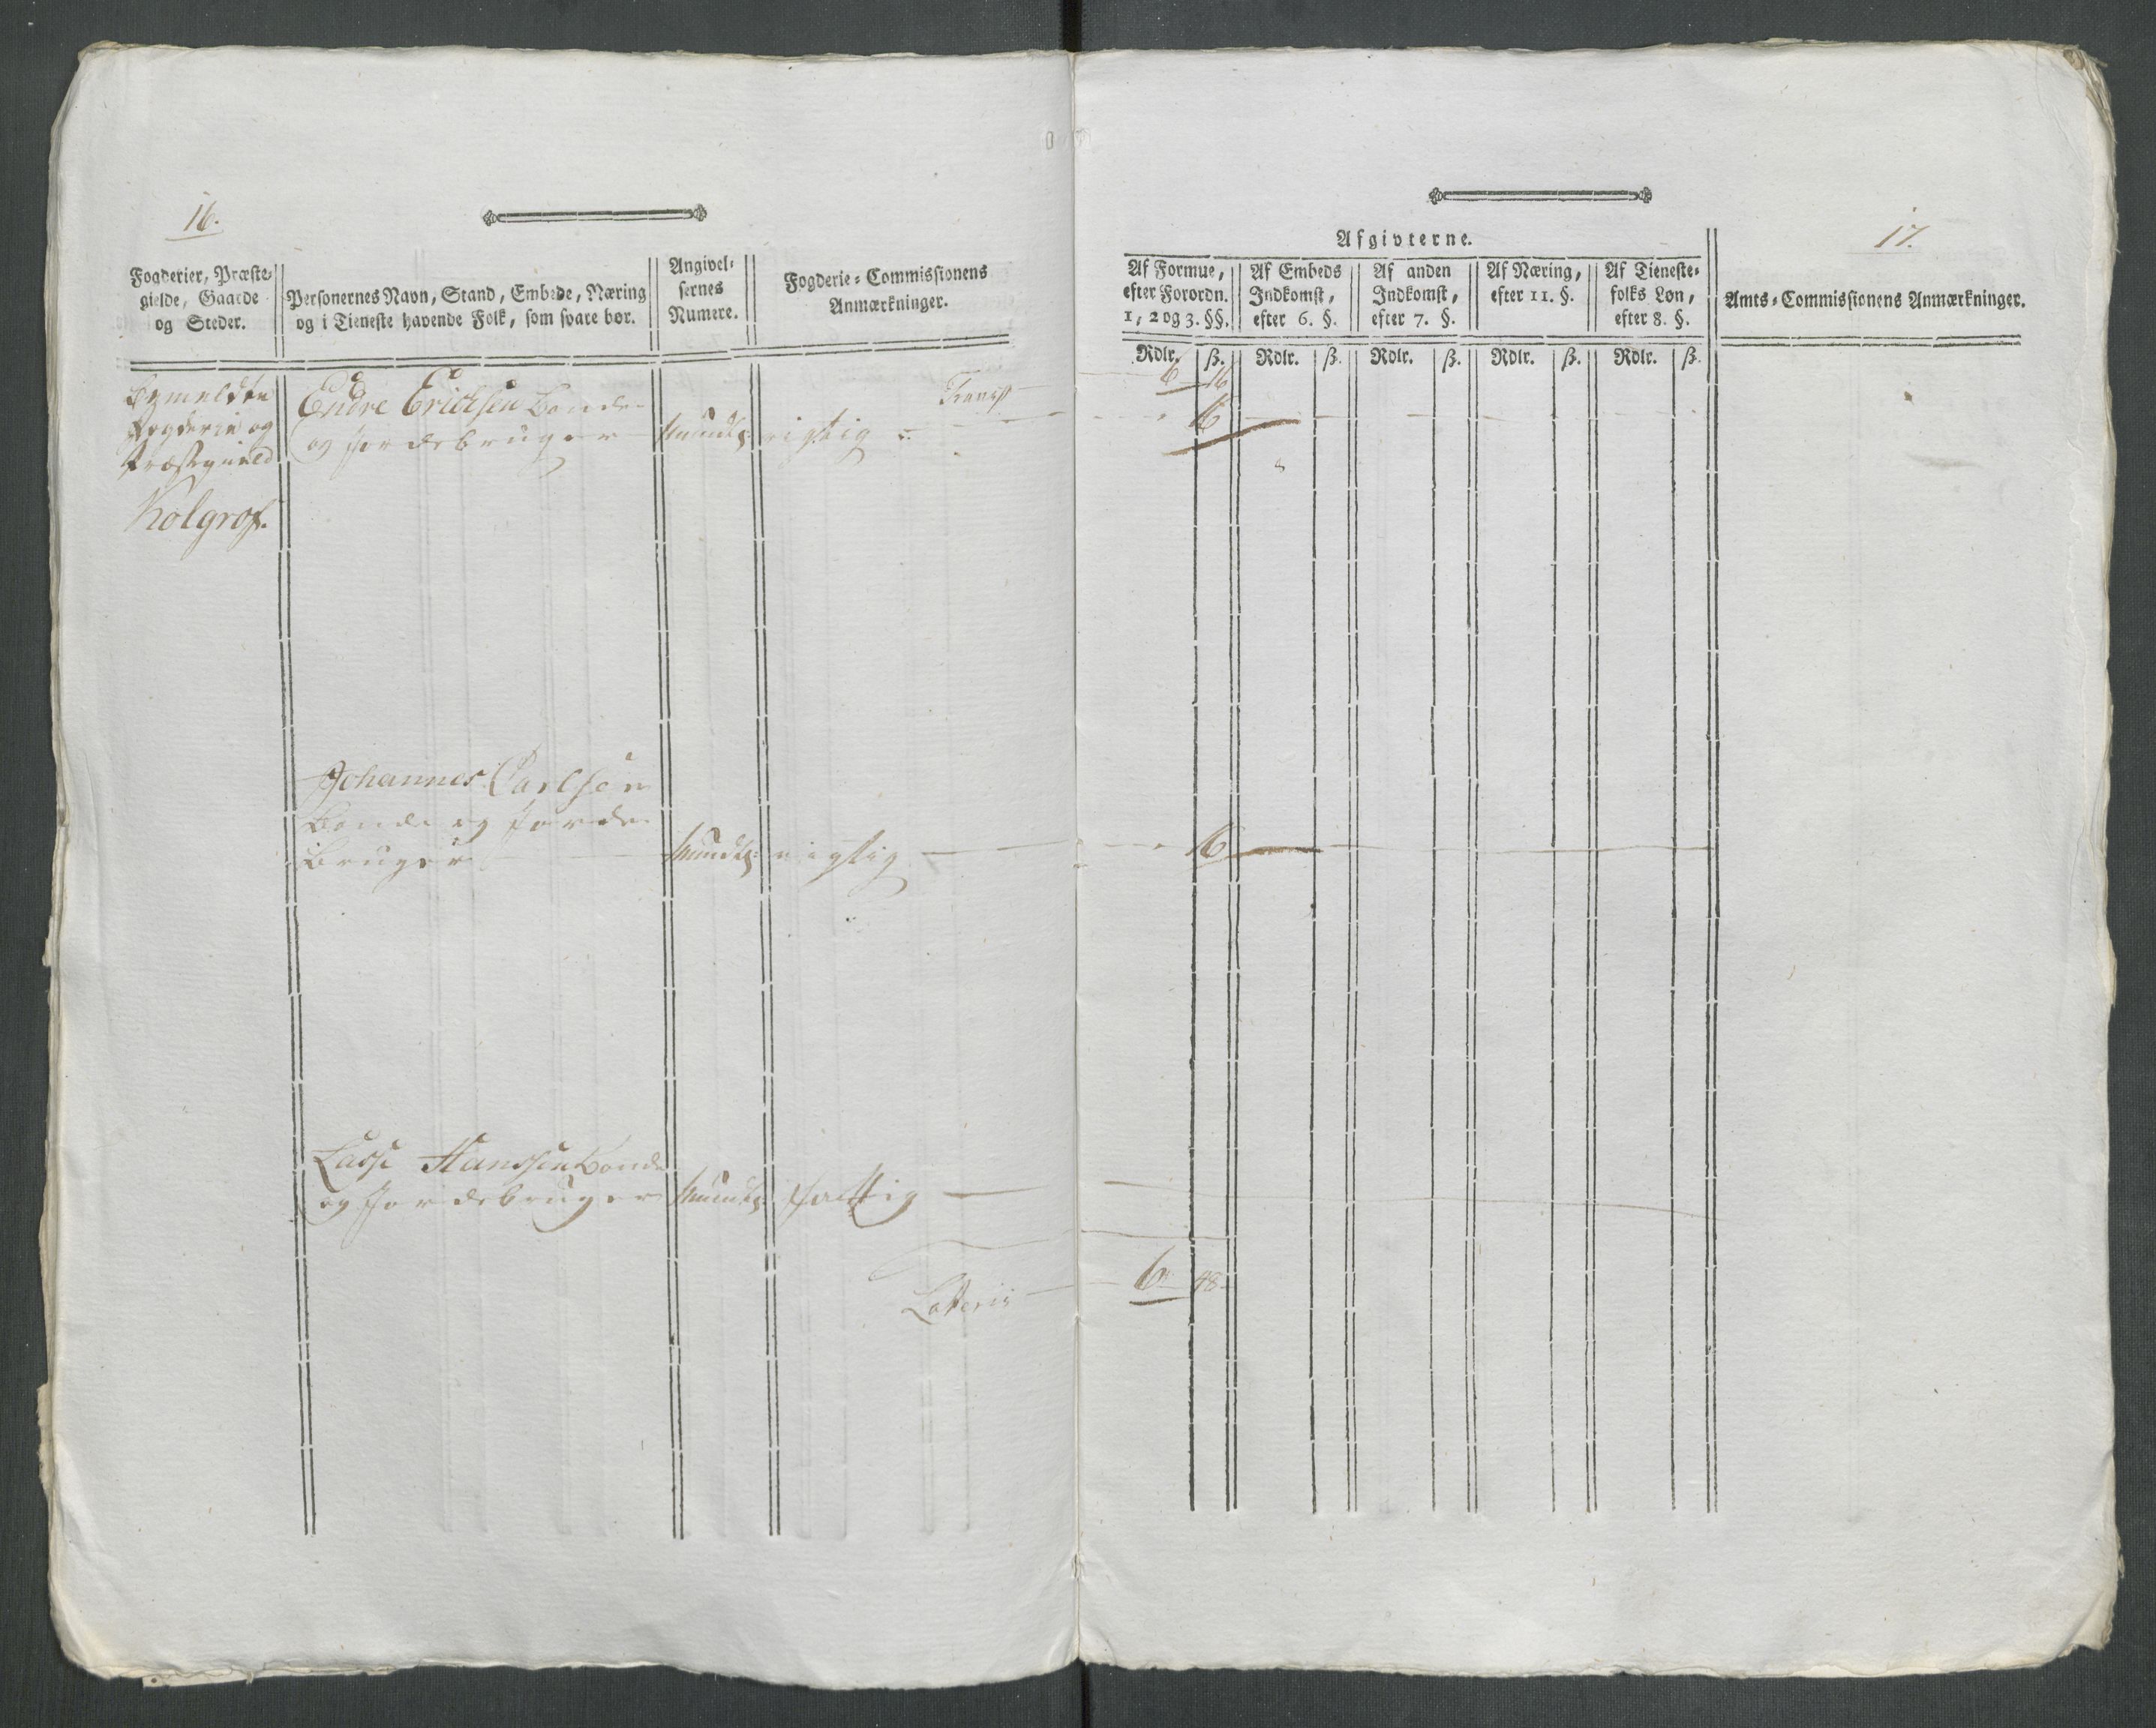 16.
Fogderier, Præste-
gielde, Gaarde
og Steder.
Personernes Navn, Stand, Embede, Næring
og i Tieneste havende Folk, som svare bør.
Angivel-
sernes
Numere.
Fogderie-Commissionens
Anmærkninger.
Bemeldte
Fogderie og
Præstegield
Kolgrof.
Transpt
Endre Erichsen Bonde
og Jordebruger mundtl: rigtig
Johannes Carlsen
Bonde og Jorde
bruger mundtl: rigtig
Lasse Hanssen Bonde
og Jordebruger mundtl: fattig
Lateris
17.
Afgivterne.
Af Formue,
efter Forordn.
1, 2 og 3. §§.
Af Embeds
Indkomst,
efter 6. §.
Af anden
Indkomst,
efter 7. §.
Af Næring,
efter 11. §.
Af Tieneste-
folks Løn,
efter 8. §.
Amts-Commissionens Anmærkninger.
Rdlr. ß. Rdlr. ß. Rdlr. ß. Rdlr. ß. Rdlr. ß.
6 16
16
16
6 48